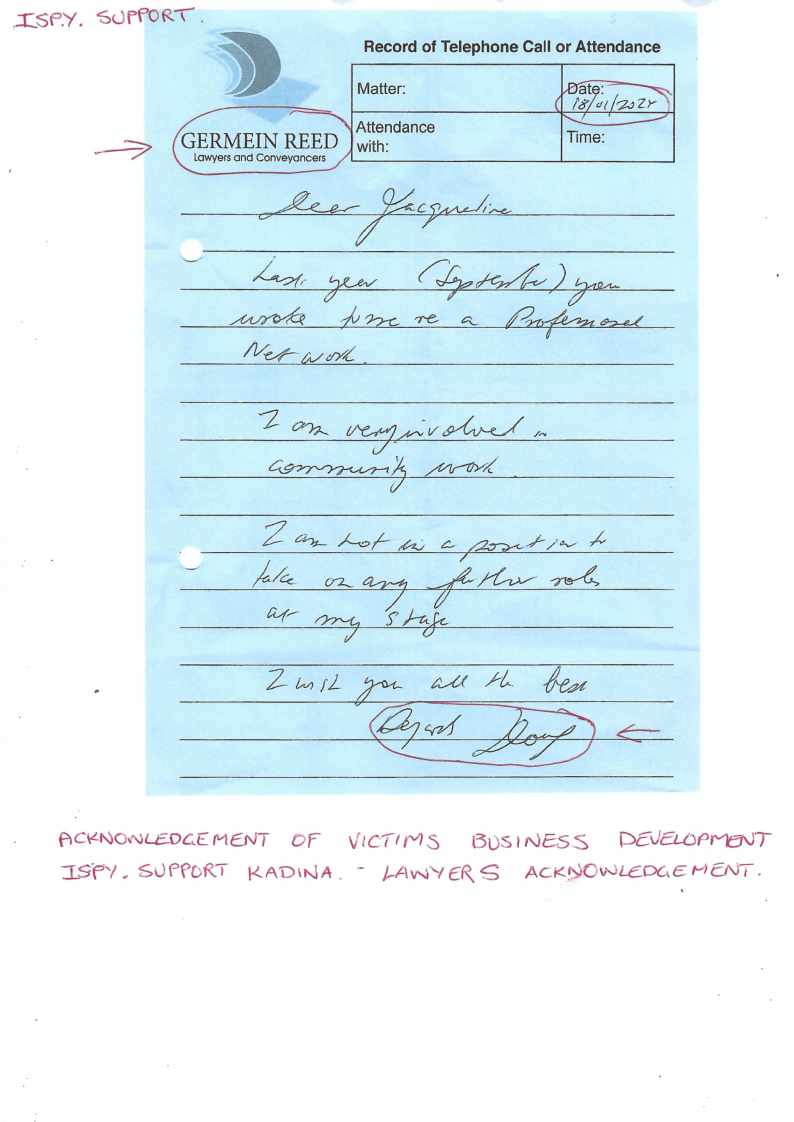 ISPY. SUPPORT.
Record of Telephone Call or Attendance
Matter:
Date:
18/01/2024
GERMEIN REED
Lawyers and Conveyancers
Attendance
with:
Time:
Dear Jacqueline
Last year (September) you
wrote to me re a Professional
Network.
I am very involved in
community work.
I am not in a position to
take on any further roles
at my stage
I wish you all the best
Regards Doug
ACKNOWLEDGEMENT OF VICTIMS BUSINESS DEVELOPMENT
ISPY. SUPPORT KADINA. - LAWYERS ACKNOWLEDGEMENT.